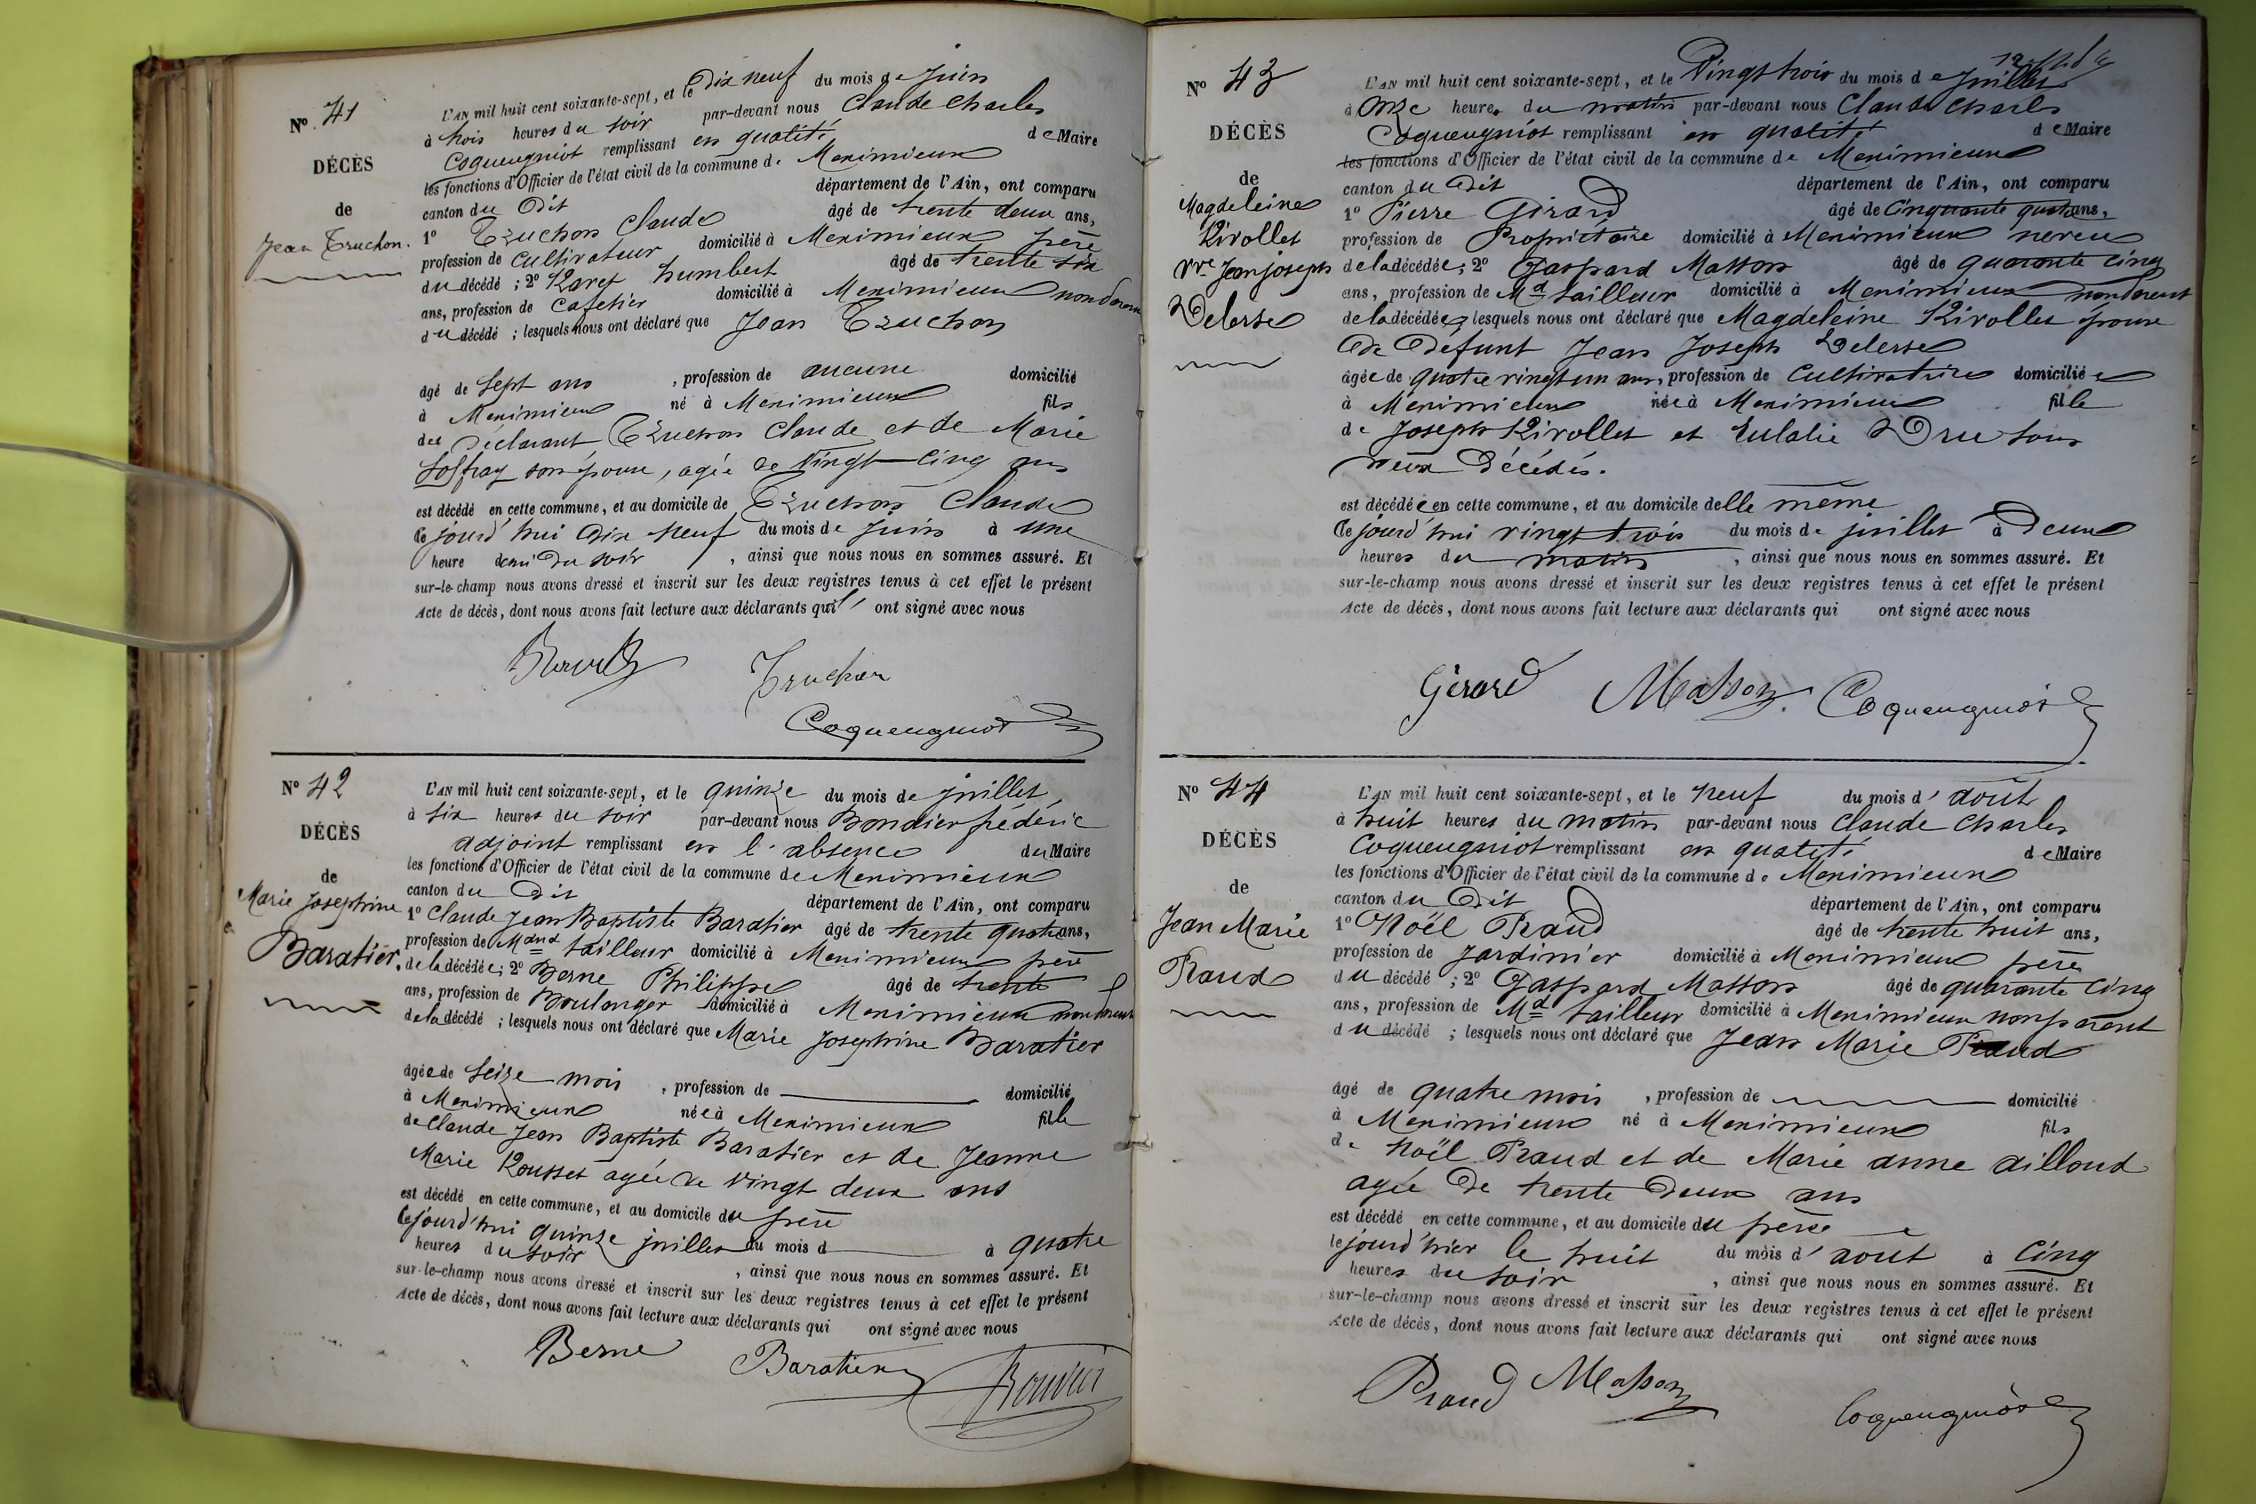 N° 41
DÉCÈS
de
Jean Truchon.
L'AN mil huit cent soixante-sept, et le Dix neuf du mois de Juin
à trois heures du soir par-devant nous Claude Charles
Coqueugniot remplissant en qualité de Maire
les fonctions d'Officier de l'état civil de la commune de Meximieux
canton du Dit département de l'Ain, ont comparu
1° Truchon Claude âgé de trente deux ans,
profession de Cultivateur domicilié à Meximieux père
du décédé ; 2° humbert âgé de trente six
ans, profession de Cafetier domicilié à Meximieux non parent
du décédé ; lesquels nous ont déclaré que Jean Truchon
âgé de Sept ans , profession de aucune domicilié
à Meximieux né à Meximieux fils
du Déclarant Truchon Claude et de Marie
son épouse, agée de Vingt-Cinq ans
est décédé en cette commune, et au domicile de Truchon Claude
ce jourd'hui Dix Neuf du mois de Juin à une
heure demi Du soir , ainsi que nous nous en sommes assuré. Et
sur-le-champ nous avons dressé et inscrit sur les deux registres tenus à cet effet le présent
Acte de décès, dont nous avons fait lecture aux déclarants qui ont signé avec nous
Truchon
Coqueugniot
N° 42
DÉCÈS
de
Marie Josephine
Baratier.
L'AN mil huit cent soixante-sept, et le quinze du mois de juillet
à six heures du soir par-devant nous frédéric
adjoint remplissant en l'absence du Maire
les fonctions d'Officier de l'état civil de la commune de Meximieux
canton du Dit département de l'Ain, ont comparu
1° Claude Jean Baptiste Baratier âgé de trente quatre ans,
profession de Mand tailleur domicilié à Meximieux père
de la décédée ; 2° Berne Philippe âgé de trente
ans, profession de Boulanger domicilié à Meximieux non parent
de la décédé ; lesquels nous ont déclaré que Marie Josephine Baratier
âgée de Seize mois , profession de domicilié
à Meximieux née à Meximieux fille
de Claude Jean Baptiste Baratier et de Jeanne
Marie Rousset agée de Vingt deux ans
est décédé en cette commune, et au domicile du père
ce jourd'hui quinze juillet du mois d à quatre
heures du soir , ainsi que nous nous en sommes assuré. Et
sur-le-champ nous avons dressé et inscrit sur les deux registres tenus à cet effet le présent
Acte de décès, dont nous avons fait lecture aux déclarants qui ont signé avec nous
Berne Baratier
N° 43
DÉCÈS
de
Magdeleine
Rivollet
Vve Jean joseph
Delorse
L'AN mil huit cent soixante-sept, et le Vingt trois du mois de Juillet
à Onze heures du matin par-devant nous Claude Charles
Coqueugniot remplissant en qualité de Maire
les fonctions d'Officier de l'état civil de la commune de Meximieux
canton du Dit département de l'Ain, ont comparu
1° Pierre Girard âgé de Cinquante quatre ans,
profession de Propriétaire domicilié à Meximieux neveu
de la décédée ; 2° Gaspard Masson âgé de quarante cinq
ans, profession de Md tailleur domicilié à Meximieux non parent
de la décédée ; lesquels nous ont déclaré que Magdeleine Rivollet épouse
De Defunt Jean Joseph Delorse
âgée de quatre vingt un ans, profession de Cultivatrice domiciliée
à Meximieux née à Meximieux fille
de Joseph Rivollet et Eulalie Dru tous
deux Décédés.
est décédée en cette commune, et au domicile delle même
ce jourd'hui vingt trois du mois de juillet à Deux
heures du matin , ainsi que nous nous en sommes assuré. Et
sur-le-champ nous avons dressé et inscrit sur les deux registres tenus à cet effet le présent
Acte de décès, dont nous avons fait lecture aux déclarants qui ont signé avec nous
Gérard Masson Coqueugniot
N° 44
DÉCÈS
de
Jean Marie
Praud
L'AN mil huit cent soixante-sept, et le neuf du mois d'août
à huit heures du matin par-devant nous Claude Charles
Coqueugniot remplissant en qualité de Maire
les fonctions d'Officier de l'état civil de la commune de Meximieux
canton du Dit département de l'Ain, ont comparu
1° Noël Praud âgé de trente huit ans,
profession de Jardinier domicilié à Meximieux père
du décédé ; 2° Gaspard Masson âgé de quarante cinq
ans, profession de Md tailleur domicilié à Meximieux non parent
du décédé ; lesquels nous ont déclaré que Jean Marie Praud
âgé de quatre mois , profession de domicilié
à Meximieux né à Meximieux fils
de Noël Praud et de Marie anne ailloud
agée De trente Deux ans
est décédé en cette commune, et au domicile du père
le jourd'hier le huit du mois d'août à Cinq
heures du soir , ainsi que nous nous en sommes assuré. Et
sur-le-champ nous avons dressé et inscrit sur les deux registres tenus à cet effet le présent
Acte de décès, dont nous avons fait lecture aux déclarants qui ont signé avec nous
Praud Masson Coqueugniot